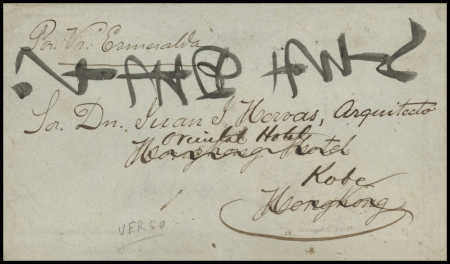 Por Vr. Esmeralda
Sor. Dn. Juan J. Hervas, Arquitecto
Oriental Hotel
Hongkong Hotel
Kobe
Hongkong
VERSO